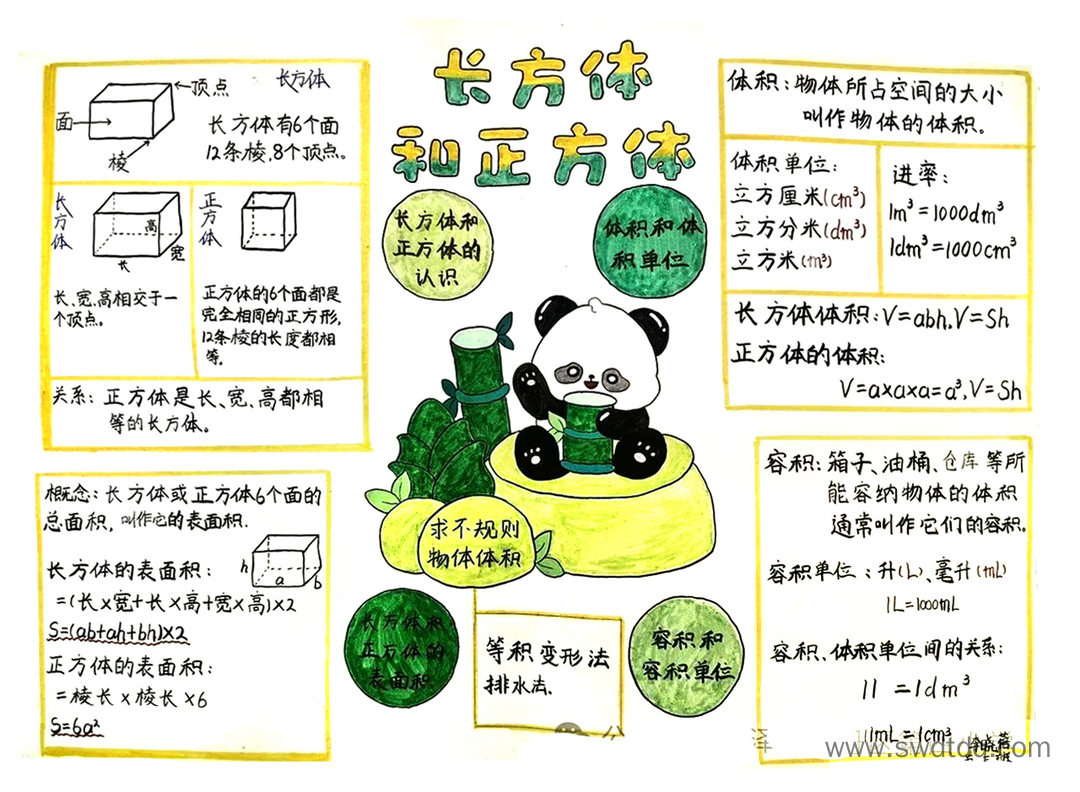 长方体
和正方体
顶点
长方体
面
棱
长方体有6个面
12条棱,8个顶点。
长方体
高
宽
长
长、宽、高相交于一
个顶点。
正方体
正方体的6个面都是
完全相同的正方形,
12条棱的长度都相
等。
关系:正方体是长、宽、高都相
等的长方体。
长方体和
正方体的
认识
体积和体
积单位
体积:物体所占空间的大小
叫作物体的体积。
体积单位:
立方厘米(cm³)
立方分米(dm³)
立方米(m³)
进率:
1m³=1000dm³
1dm³=1000cm³
长方体体积:V=abh.V=Sh
正方体的体积:
V=a×a×a=a³,V=Sh
概念:长方体或正方体6个面的
总面积,叫作它的表面积.
h
a
b
长方体的表面积:
=(长×宽+长×高+宽×高)×2
S=(ab+ah+bh)×2
正方体的表面积:
=棱长×棱长×6
S=6a²
求不规则
物体体积
长方体和
正方体的
表面积
等积变形法
排水法.
容积和
容积单位
容积:箱子、油桶、仓库等所
能容纳物体的体积
通常叫作它们的容积。
容积单位:升(L)、毫升(mL)
1L=1000mL
容积、体积单位间的关系:
1l=1dm³
1mL=1cm³
www.swdtdq.com